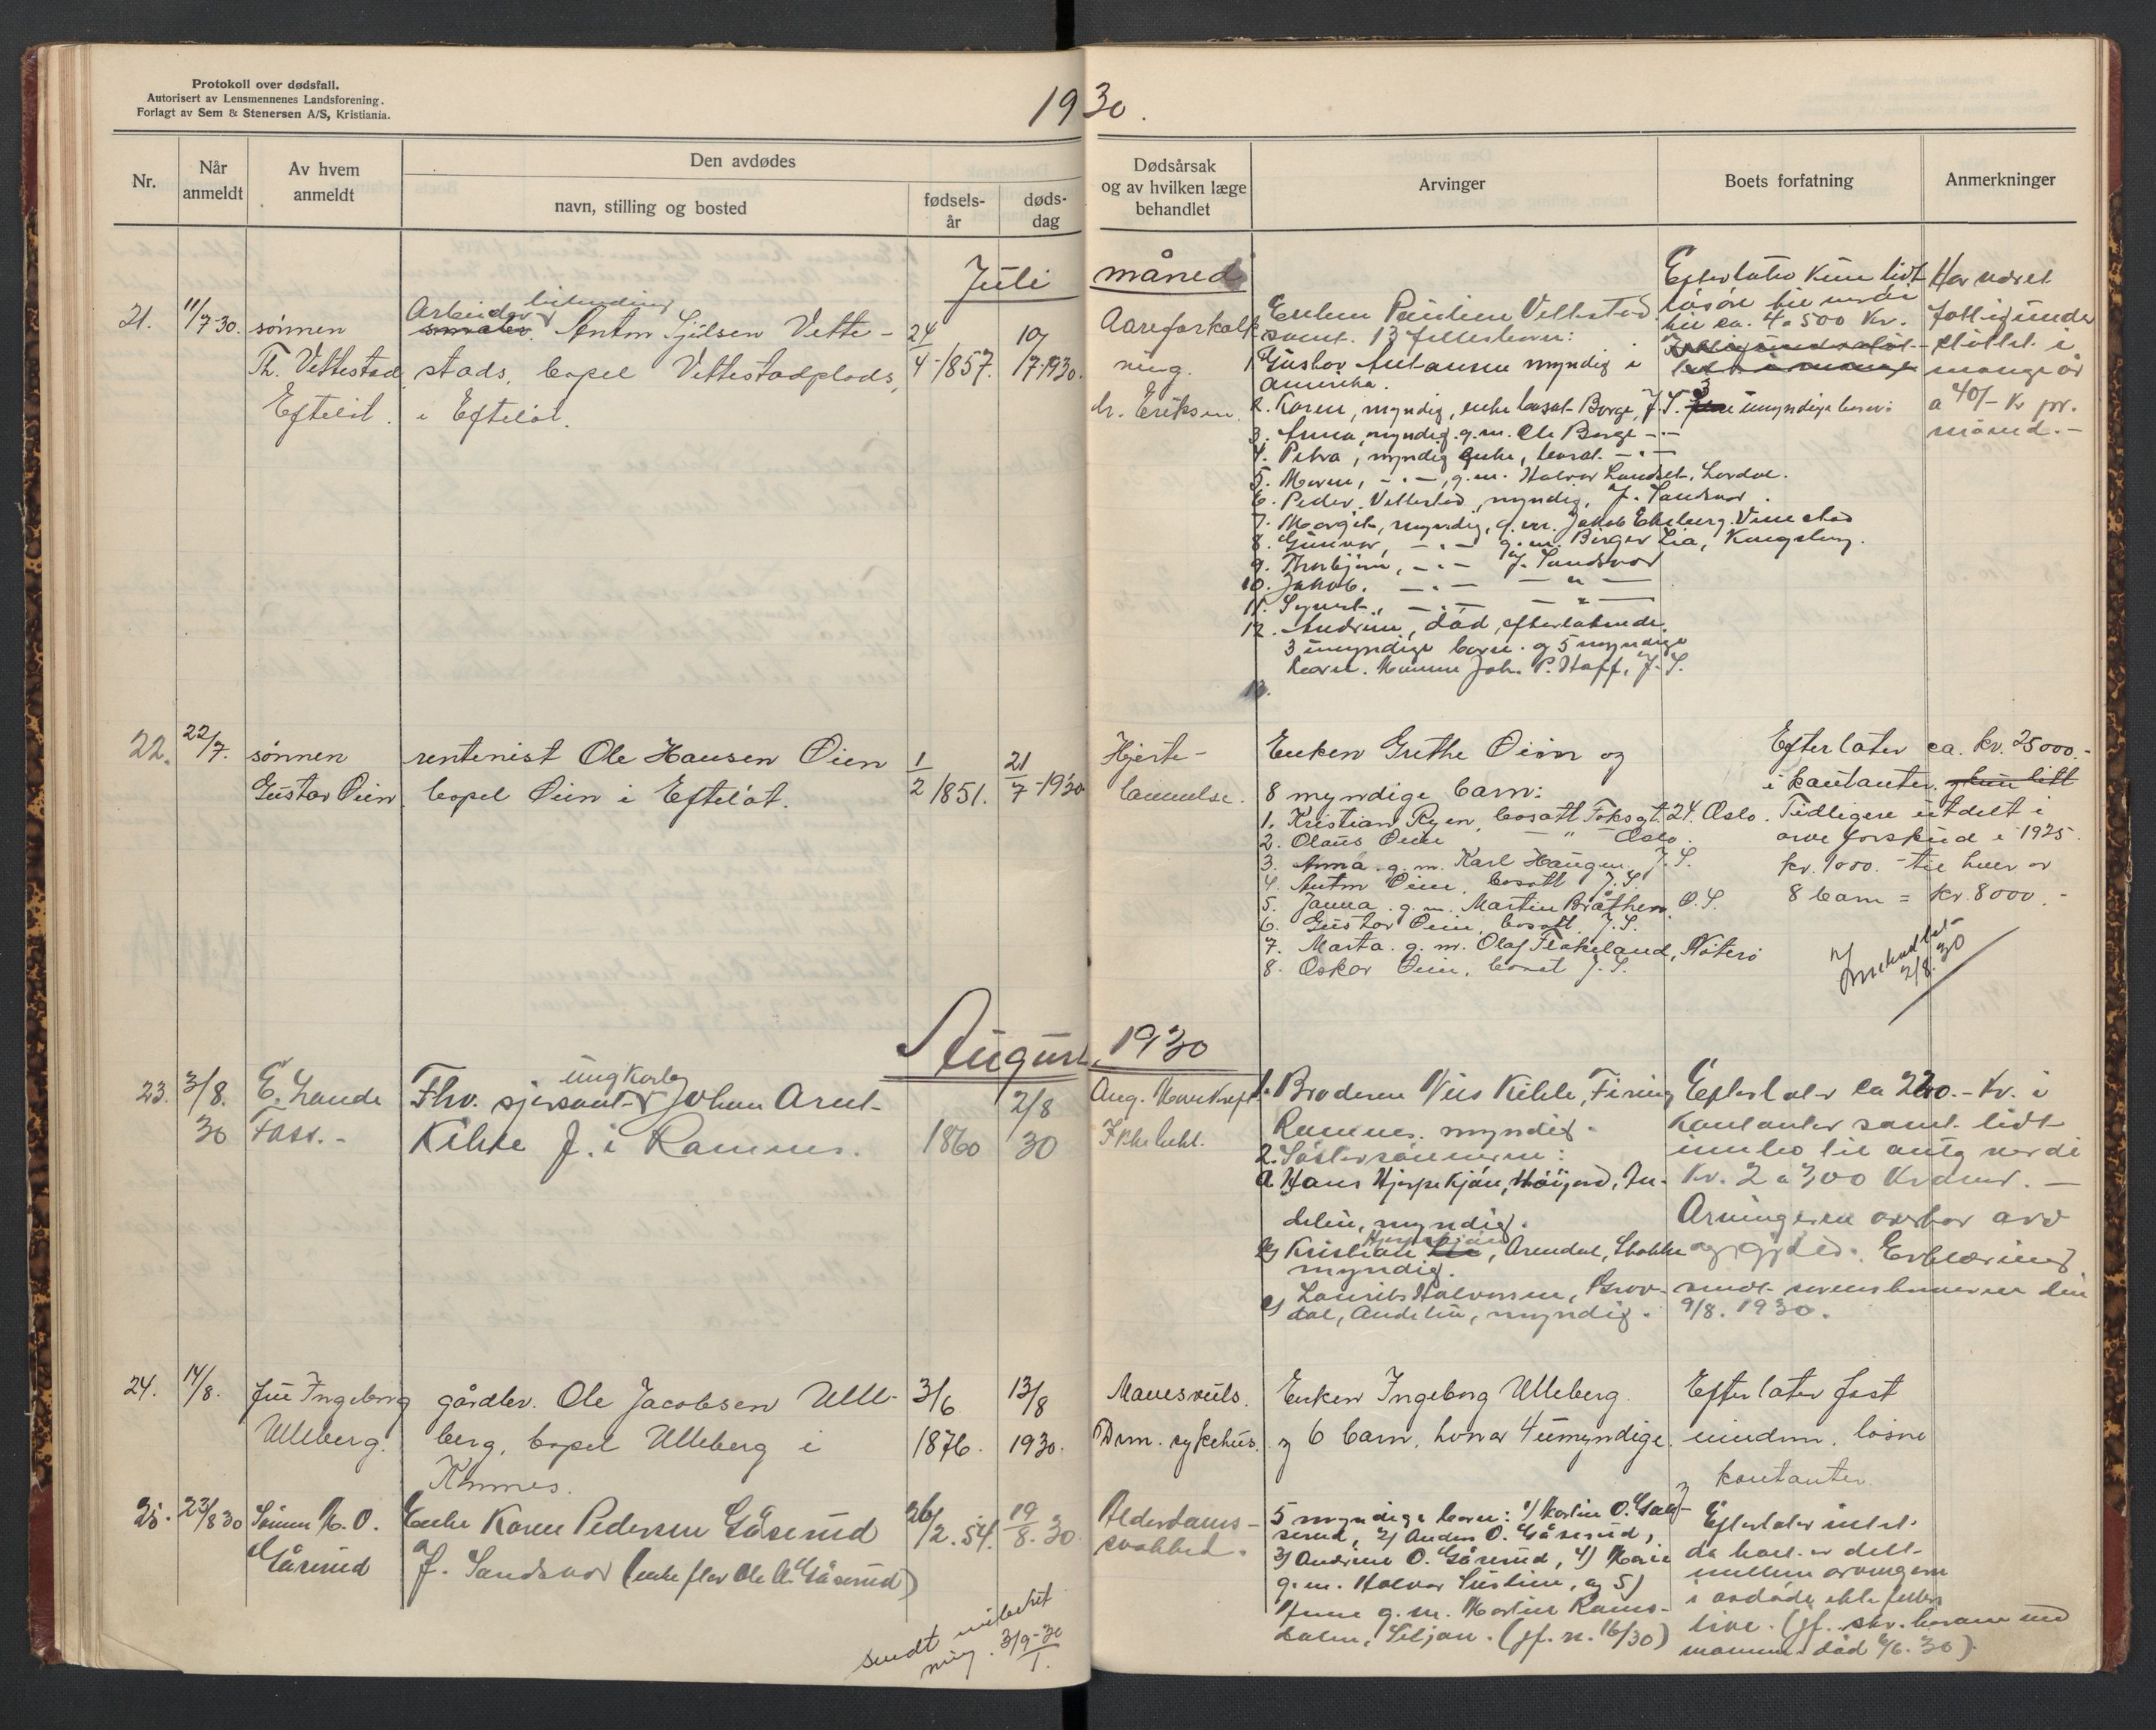 Protokoll over dødsfall.
Autorisert av Lensmennenes Landsforening.
Forlagt av Sem & Stenersen A/S, Kristiania.
1930.
Nr.
Når anmeldt
Av hvem anmeldt
Den avdødes
navn, stilling og bosted
fødsels-år
døds-dag
Dødsårsak og av hvilken læge behandlet
Arvinger
Boets forfatning
Anmerkninger
Juli måned
21.
11/7-30.
sønnen
Th. Vettestad
Eftelöt.
Arbeider
Anton Vette-
stads, bopel Vettestadplads,
i Eftelöt.
24/4-1857.
10/7-1930.
Aareforkalk-
ning.
dr. Eriksen.
Enken Pauline Vettestad
samt 13 fellesbarn:
1. Gustav Antonsen myndig i
Amerika.
2. Karen, myndig, enke bosat Borge, J. S.
3. Anna, myndig, g.m. Ole Borge -"-
4. Petra, myndig enke, bosat -"-
5. Maren, -"-, g.m. Halvor Landset, Lardal.
6. Peder Vettestad, myndig, J. Sandsvær.
7. Margit, myndig, g.m. Jakob Ekeberg.
8. Gunvor, -"- g.m. Birger Lia, Kongsberg.
9. Thorbjörn, -"- J. Sandsvær
10. Jakob, -"- -"-
11. -"- -"-
12. Andrine, död, efterlatende
3 umyndige barn og 5 myndige
barn. Joh. P. Staff, J. S.
13.
Efterlater kun lidt
lösöre til verdi
til ca. 4 a 500 Kr.
3 umyndige barn:
Har været
fattigunder
stöttet i
mange år
a 40/- Kr pr.
måned.-
22.
22/7.
sønnen
Gustav Öien.
rentenist Ole Hansen Öien
bopel Öien i Eftelöt.
1/2 1851.
21/7-1930
Hjerte-
lammelse.
Enken Grethe Öien og
8 myndige barn:
1. Kristian Ryen, bosatt Foksgt. 24. Oslo.
2. Olaus Öien -"- Oslo.
3. Anna. g.m. Karl Haugen. J. S.
4. Anton Öien, bosatt J. S.
5. Janna. g.m. Martin Bråthen O. S.
6. Gustav Öien, bosatt. J. S.
7. Marta. g.m. Olaf Flakeland, Nöterö
8. Oskar Öien, bosat J. S.
Efterlater ca. kr. 25000.-
i kontanter.
Tidligere utdelt i
arve forskud i 1925.
kr. 1000.- til hver av
8 barn = kr. 8000.-
2/8.30
August 1930
23.
3/8.
30
E. Lande
Foss.-
Fhv. sjersant ungkarl Johan Arnt-
Kihle J. i Ramnes.
1860
2/8
30
Aug.
Ikke beh.
1. Broderen Nils Kihle, Firing
Ramnes. myndig.
2. Söstersönnerne:
a Hans Hjerpekjön, Höijord, An-
debu, myndig.
b) Kristian Hjerpekjön, Arendal, Stokke
myndig.
c) Laurits Halvorsen,
dal, Andebu, myndig.
Efterlater ca 220.- Kr. i
Kontanter samt lidt
innbo til antg verdi
Kr. 2 a 300 Kroner.-
Arvingerne overtar arv
og gjæld. Erklæring
sendt sorenskriveren den
9/8. 1930.
24.
14/8.
fru Ingeborg
Ulleberg.
gårdbr. Ole Jacobsen Ulle-
berg, bopel Ulleberg i
3/6
1876.
13/8
1930.
Mavesvuls.
Drm. sykehus.
Enken Ingeborg Ulleberg.
og 6 barn, hvorav 4 umyndige.
Efterlater fast
eiendom, lösöre
og kontanter.
25.
23/8 30
Sönnen M. O.
Gåserud
Enke Karen Pedersen Gåserud
J. Sandsvær (enke efter Ole A. Gåserud)
26/2.54.
19/8.30.
Alderdoms-
svakhet.
5 myndige barn: 1/ Martin O. Gåse-
serud, 2) Anders O. Gåserud,
3) Andrine O. Gåserud, 4) Marie
g.m. Halvor og 5)
g.m. Martin Rams-
dalen, Siljan. (jf. n. 16/30)
Efterlater intet.
da boet er delt
mellem arvingene
i avdöde ektefelles
live. (jf. skr.
mannen död 6/6.30).
sendt
3/9-30